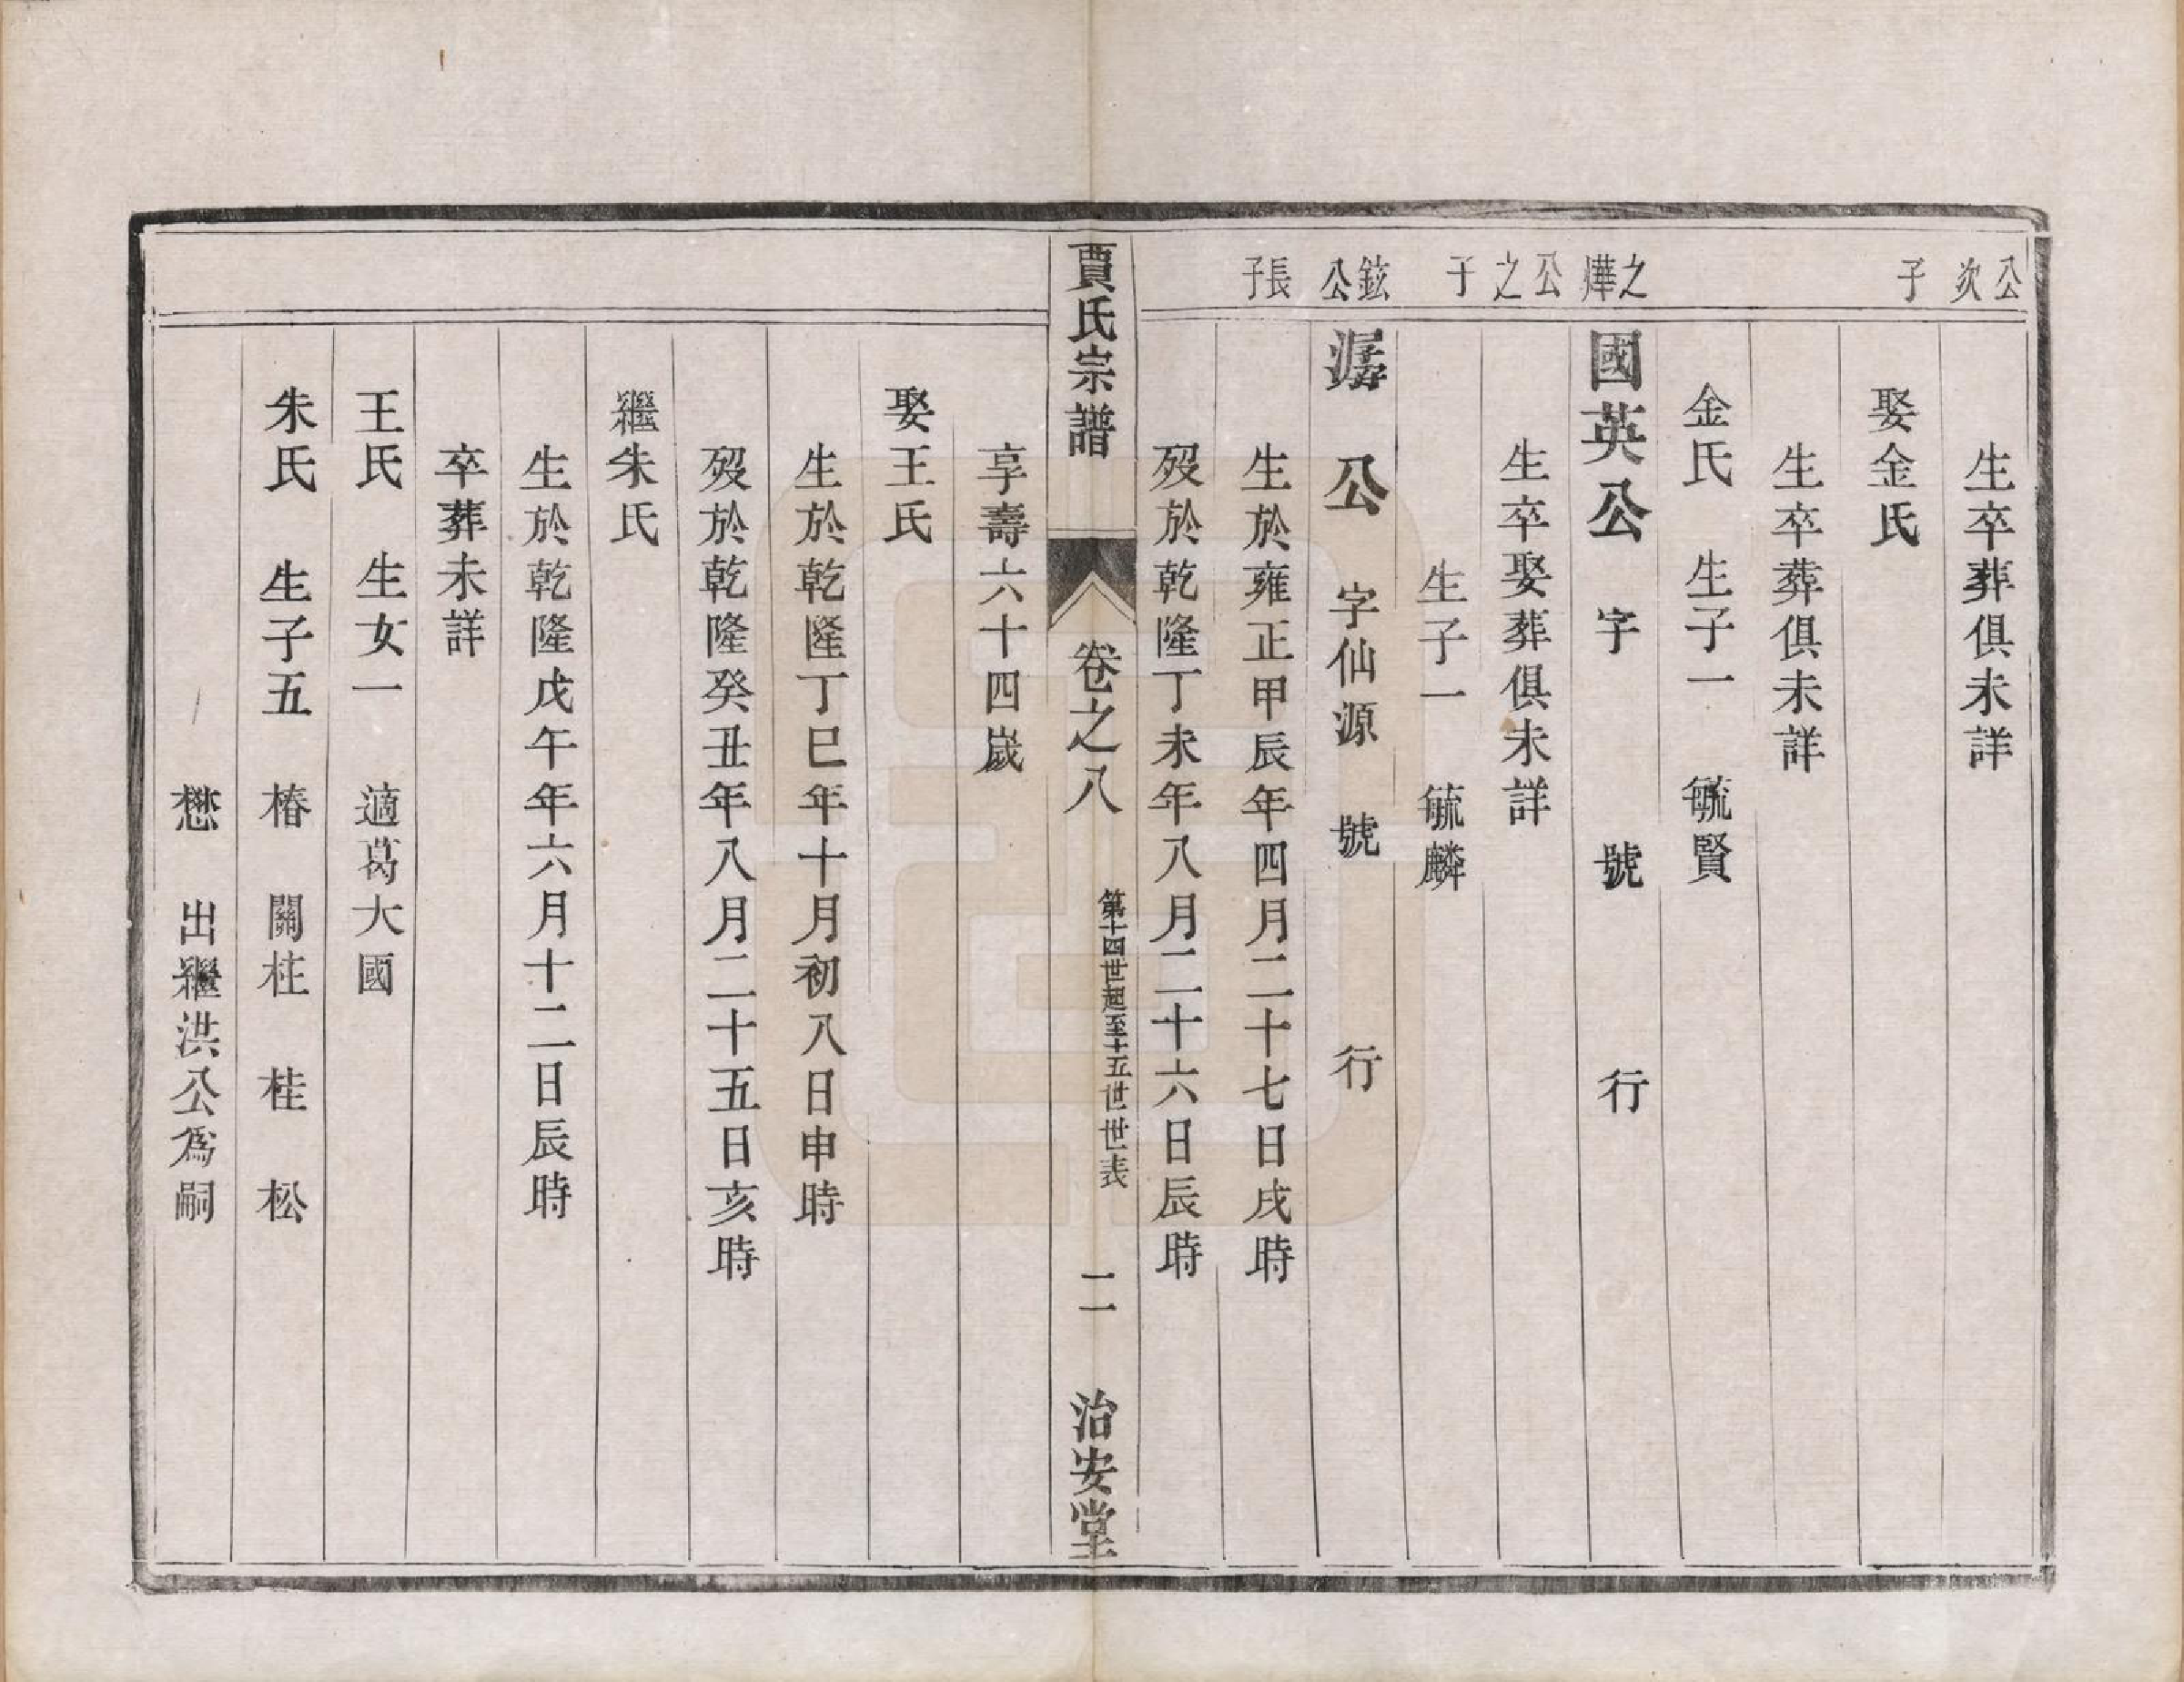 公次子
生卒葬俱未詳
娶金氏
生卒葬俱未詳
金氏 生子一 毓賢
之燁公之子
國英公 字 號 行
生卒娶葬俱未詳
生子一 毓麟
鉉公長子
潺公 字仙源 號 行
生於雍正甲辰年四月二十七日戌時
歿於乾隆丁未年八月二十六日辰時
賈氏宗譜 卷之八 第十四世起至十五世世表 二 治安堂
享壽六十四歲
娶王氏
生於乾隆丁巳年十月初八日申時
歿於乾隆癸丑年八月二十五日亥時
繼朱氏
生於乾隆戊午年六月十二日辰時
卒葬未詳
王氏 生女一 適葛大國
朱氏 生子五 椿 關柱 桂 松
楙 出繼洪公爲嗣